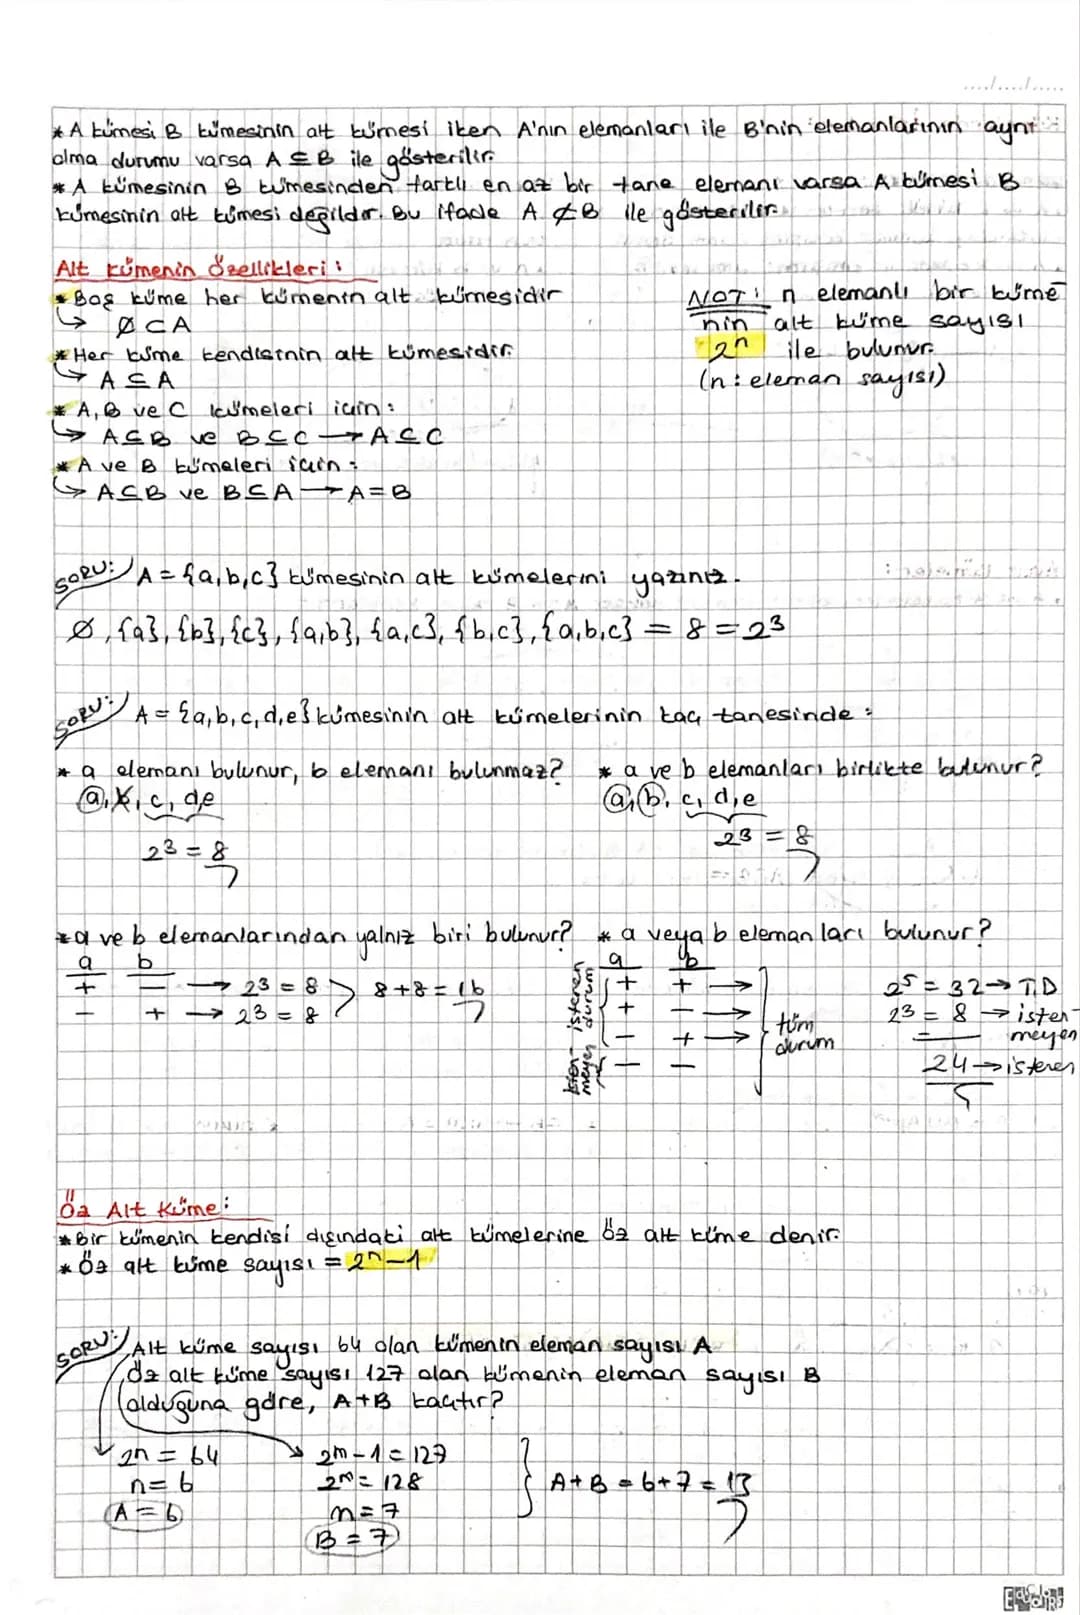 * A kümesi B kümesinin alt kümesi iken A'nın elemanları ile B'nin elemanlarının aynı
olma durumu varsa A ⊆ B ile gösterilir.
* A kümesinin B kümesinden farklı en az bir tane elemanı varsa A kümesi B
kümesinin alt kümesi değildir. Bu ifade A ⊄ B ile gösterilir.
Alt kümenin özellikleri:
* Boş küme her kümenin alt kümesidir
↳ Ø ⊂ A
* Her küme kendisinin alt kümesidir.
↳ A ⊆ A
* A, B ve C kümeleri için:
↳ A ⊆ B ve B ⊆ C → A ⊆ C
* A ve B kümeleri için:
↳ A ⊆ B ve B ⊆ A → A = B
NOT: n elemanlı bir küme
nin alt küme sayısı
2ⁿ ile bulunur.
(n: eleman sayısı)
SORU: A = {a,b,c} kümesinin alt kümelerini yazınız.
Ø, {a}, {b}, {c}, {a,b}, {a,c}, {b,c}, {a,b,c} = 8 = 2³
SORU: A = {a,b,c,d,e} kümesinin alt kümelerinin kaç tanesinde:
* a elemanı bulunur, b elemanı bulunmaz?
a, b, c, d e
2³ = 8
* a ve b elemanları birlikte bulunur?
a, b, c, d, e
2³ = 8
* a ve b elemanlarından yalnız biri bulunur?
a b
+ − → 2³ = 8
− + → 2³ = 8
8+8=16
* a veya b elemanları bulunur?
a b
+ + →
+ − →
− + →
− −
istenen durum
isten-meyen
tüm
durum
2⁵ = 32 → T.D
2³ = 8 → isten-
meyen
24 → istenen
Öz Alt Küme:
* Bir kümenin kendisi dışındaki alt kümelerine öz alt küme denir.
* Öz alt küme sayısı = 2ⁿ−1
SORU: Alt küme sayısı 64 olan kümenin eleman sayısı A
öz alt küme sayısı 127 olan kümenin eleman sayısı B
olduğuna göre, A+B kaçtır?
2ⁿ = 64
n = 6
A = 6
2ᵐ − 1 = 127
2ᵐ = 128
m = 7
B = 7
A+B = 6+7 = 13